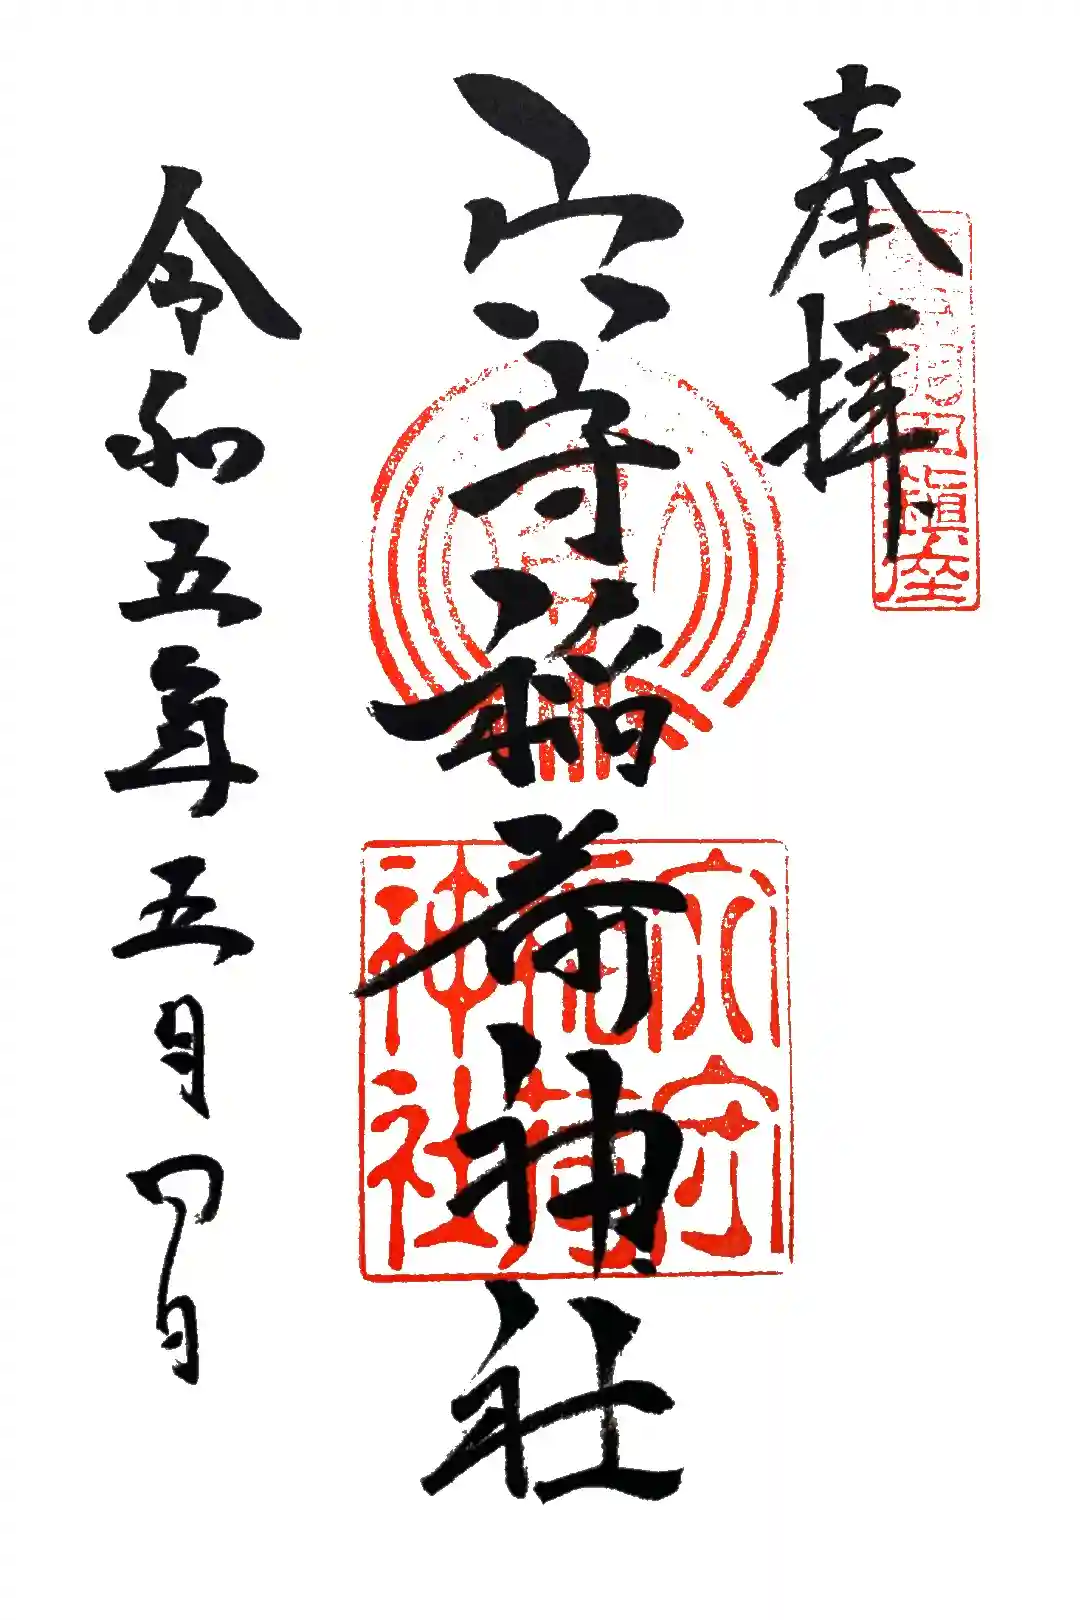 奉拝
東京羽田鎮座
穴守稲荷神社
穴守
稲荷
神社
令和五年五月四日